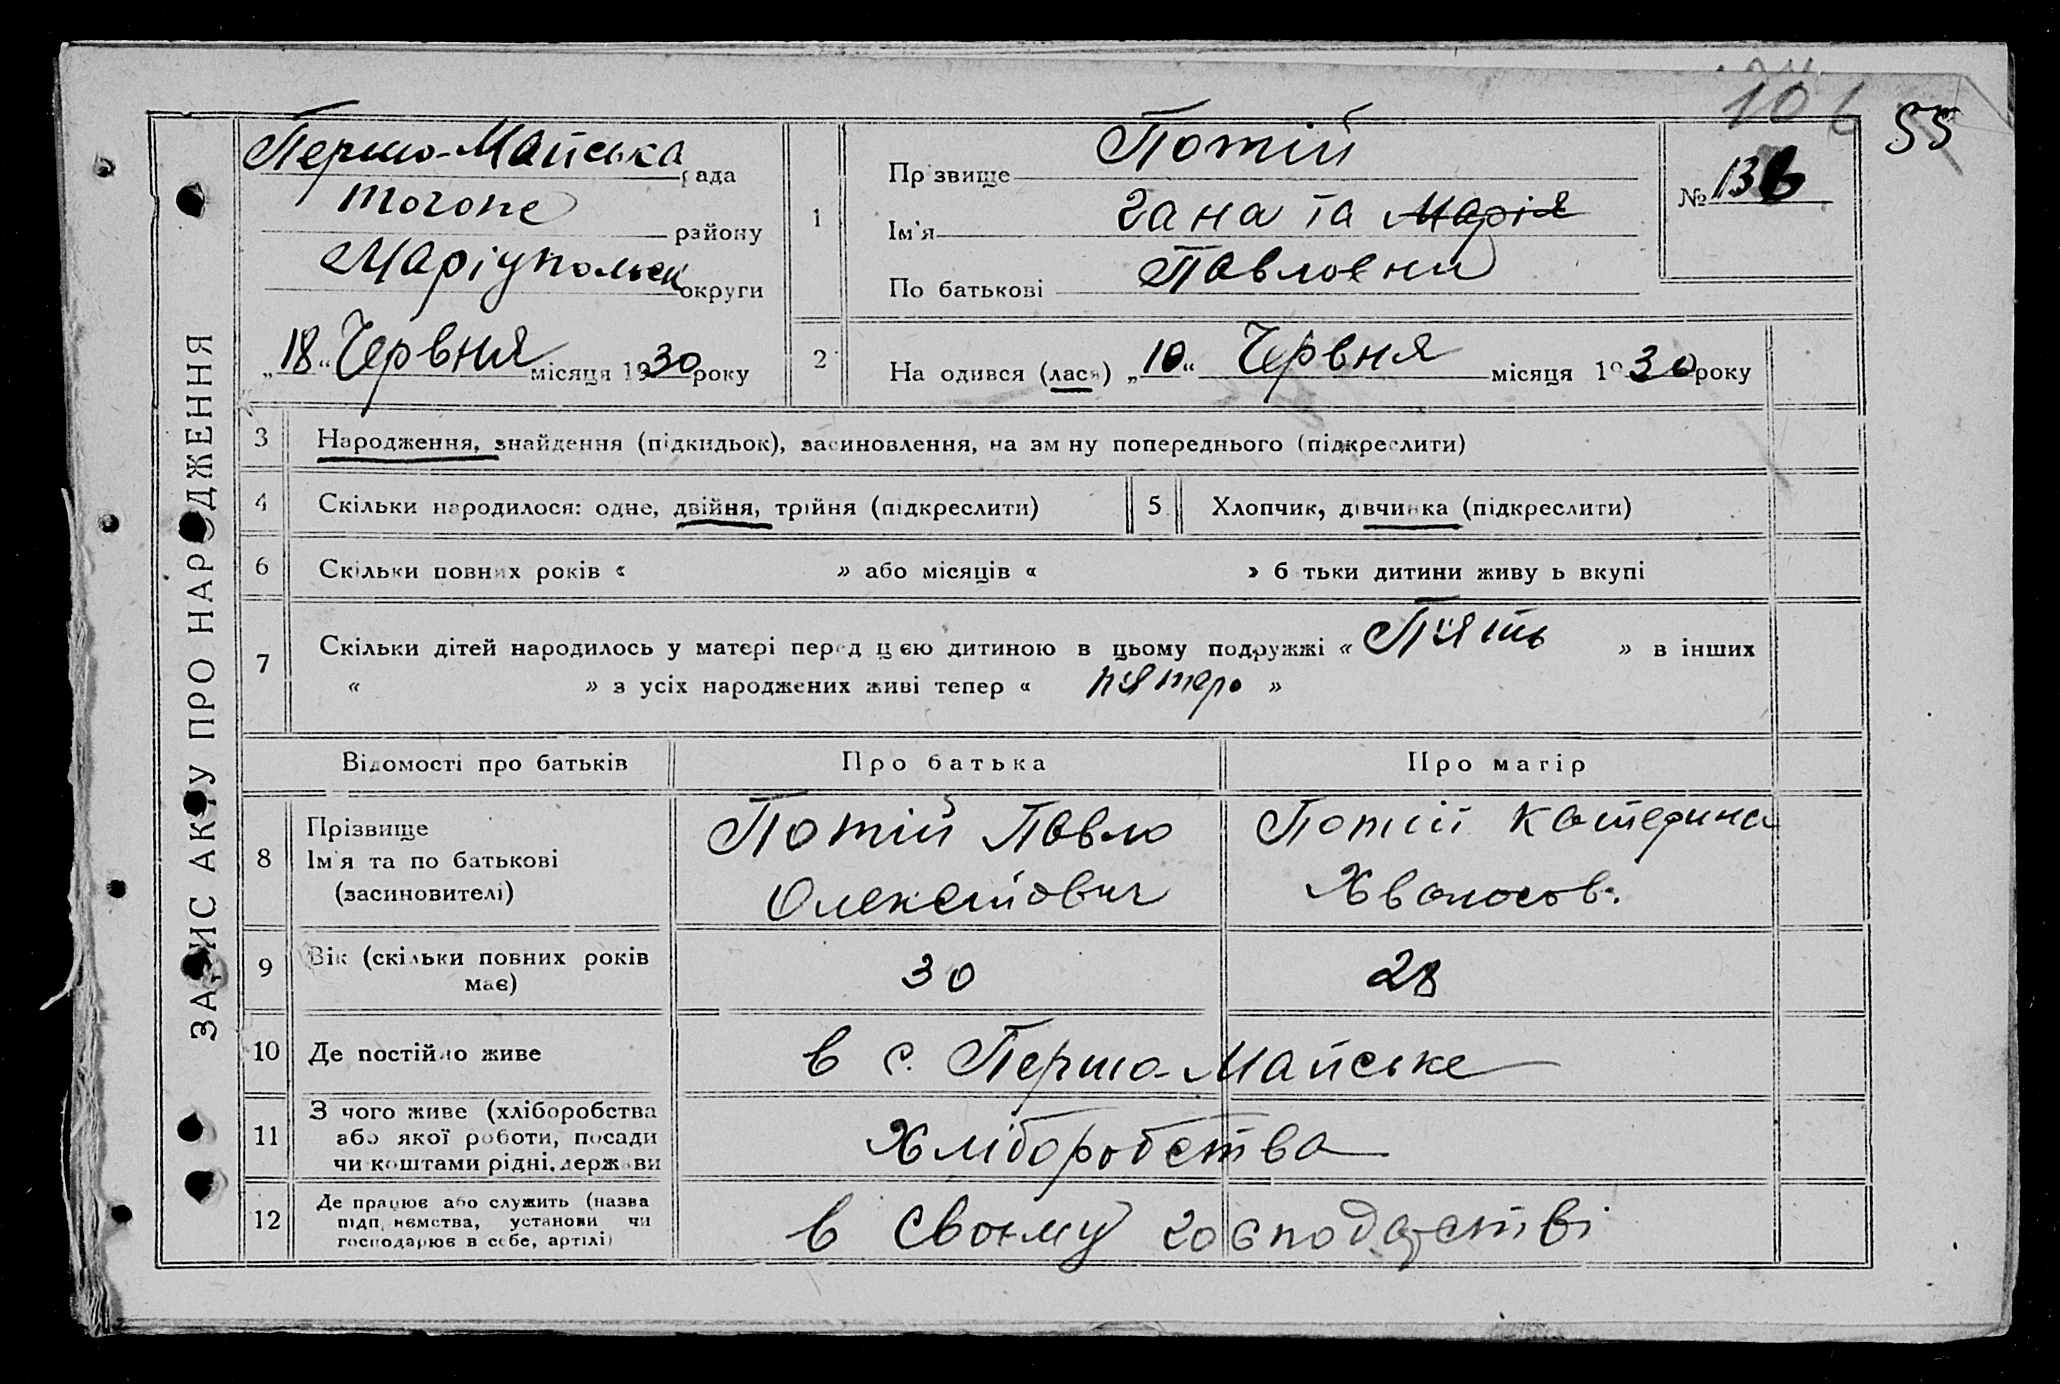 106
55
Першо-Майська рада
тогоже району
Маріупольськ округи
„18“ Червня місяця 1930 року
1
Прізвище Потій
Ім'я Гана та Марія
По батькові Павловни
№ 136
2
Народився (лася) „10“ Червня місяця 1930 року
ЗАПИС АКТУ ПРО НАРОДЖЕННЯ
3 Народження, знайдення (підкидьок), засиновлення, на зміну попереднього (підкреслити)
4 Скільки народилося: одне, двійня, трійня (підкреслити)
5 Хлопчик, дівчинка (підкреслити)
6 Скільки повних років « » або місяців « » батьки дитини живуть вкупі
7 Скільки дітей народилось у матері перед цією дитиною в цьому подружжі « П'ять » в інших
« » з усіх народжених живі тепер « п'ятеро »
Відомості про батьків
Про батька
Про матір
8
Прізвище
Ім'я та по батькові
(засиновителі)
Потій Павло
Олексійович
Потій Катерина
Хвалосов.
9
Вік (скільки повних років
має)
30
28
10 Де постійно живе
в с. Першо-Майське
11
З чого живе (хліборобства
або якої роботи, посади
чи коштами рідні, держави
Хліборобства
12
Де працює або служить (назва
підприємства, установи чи
господарює в себе, артілі)
в своєму господарстві